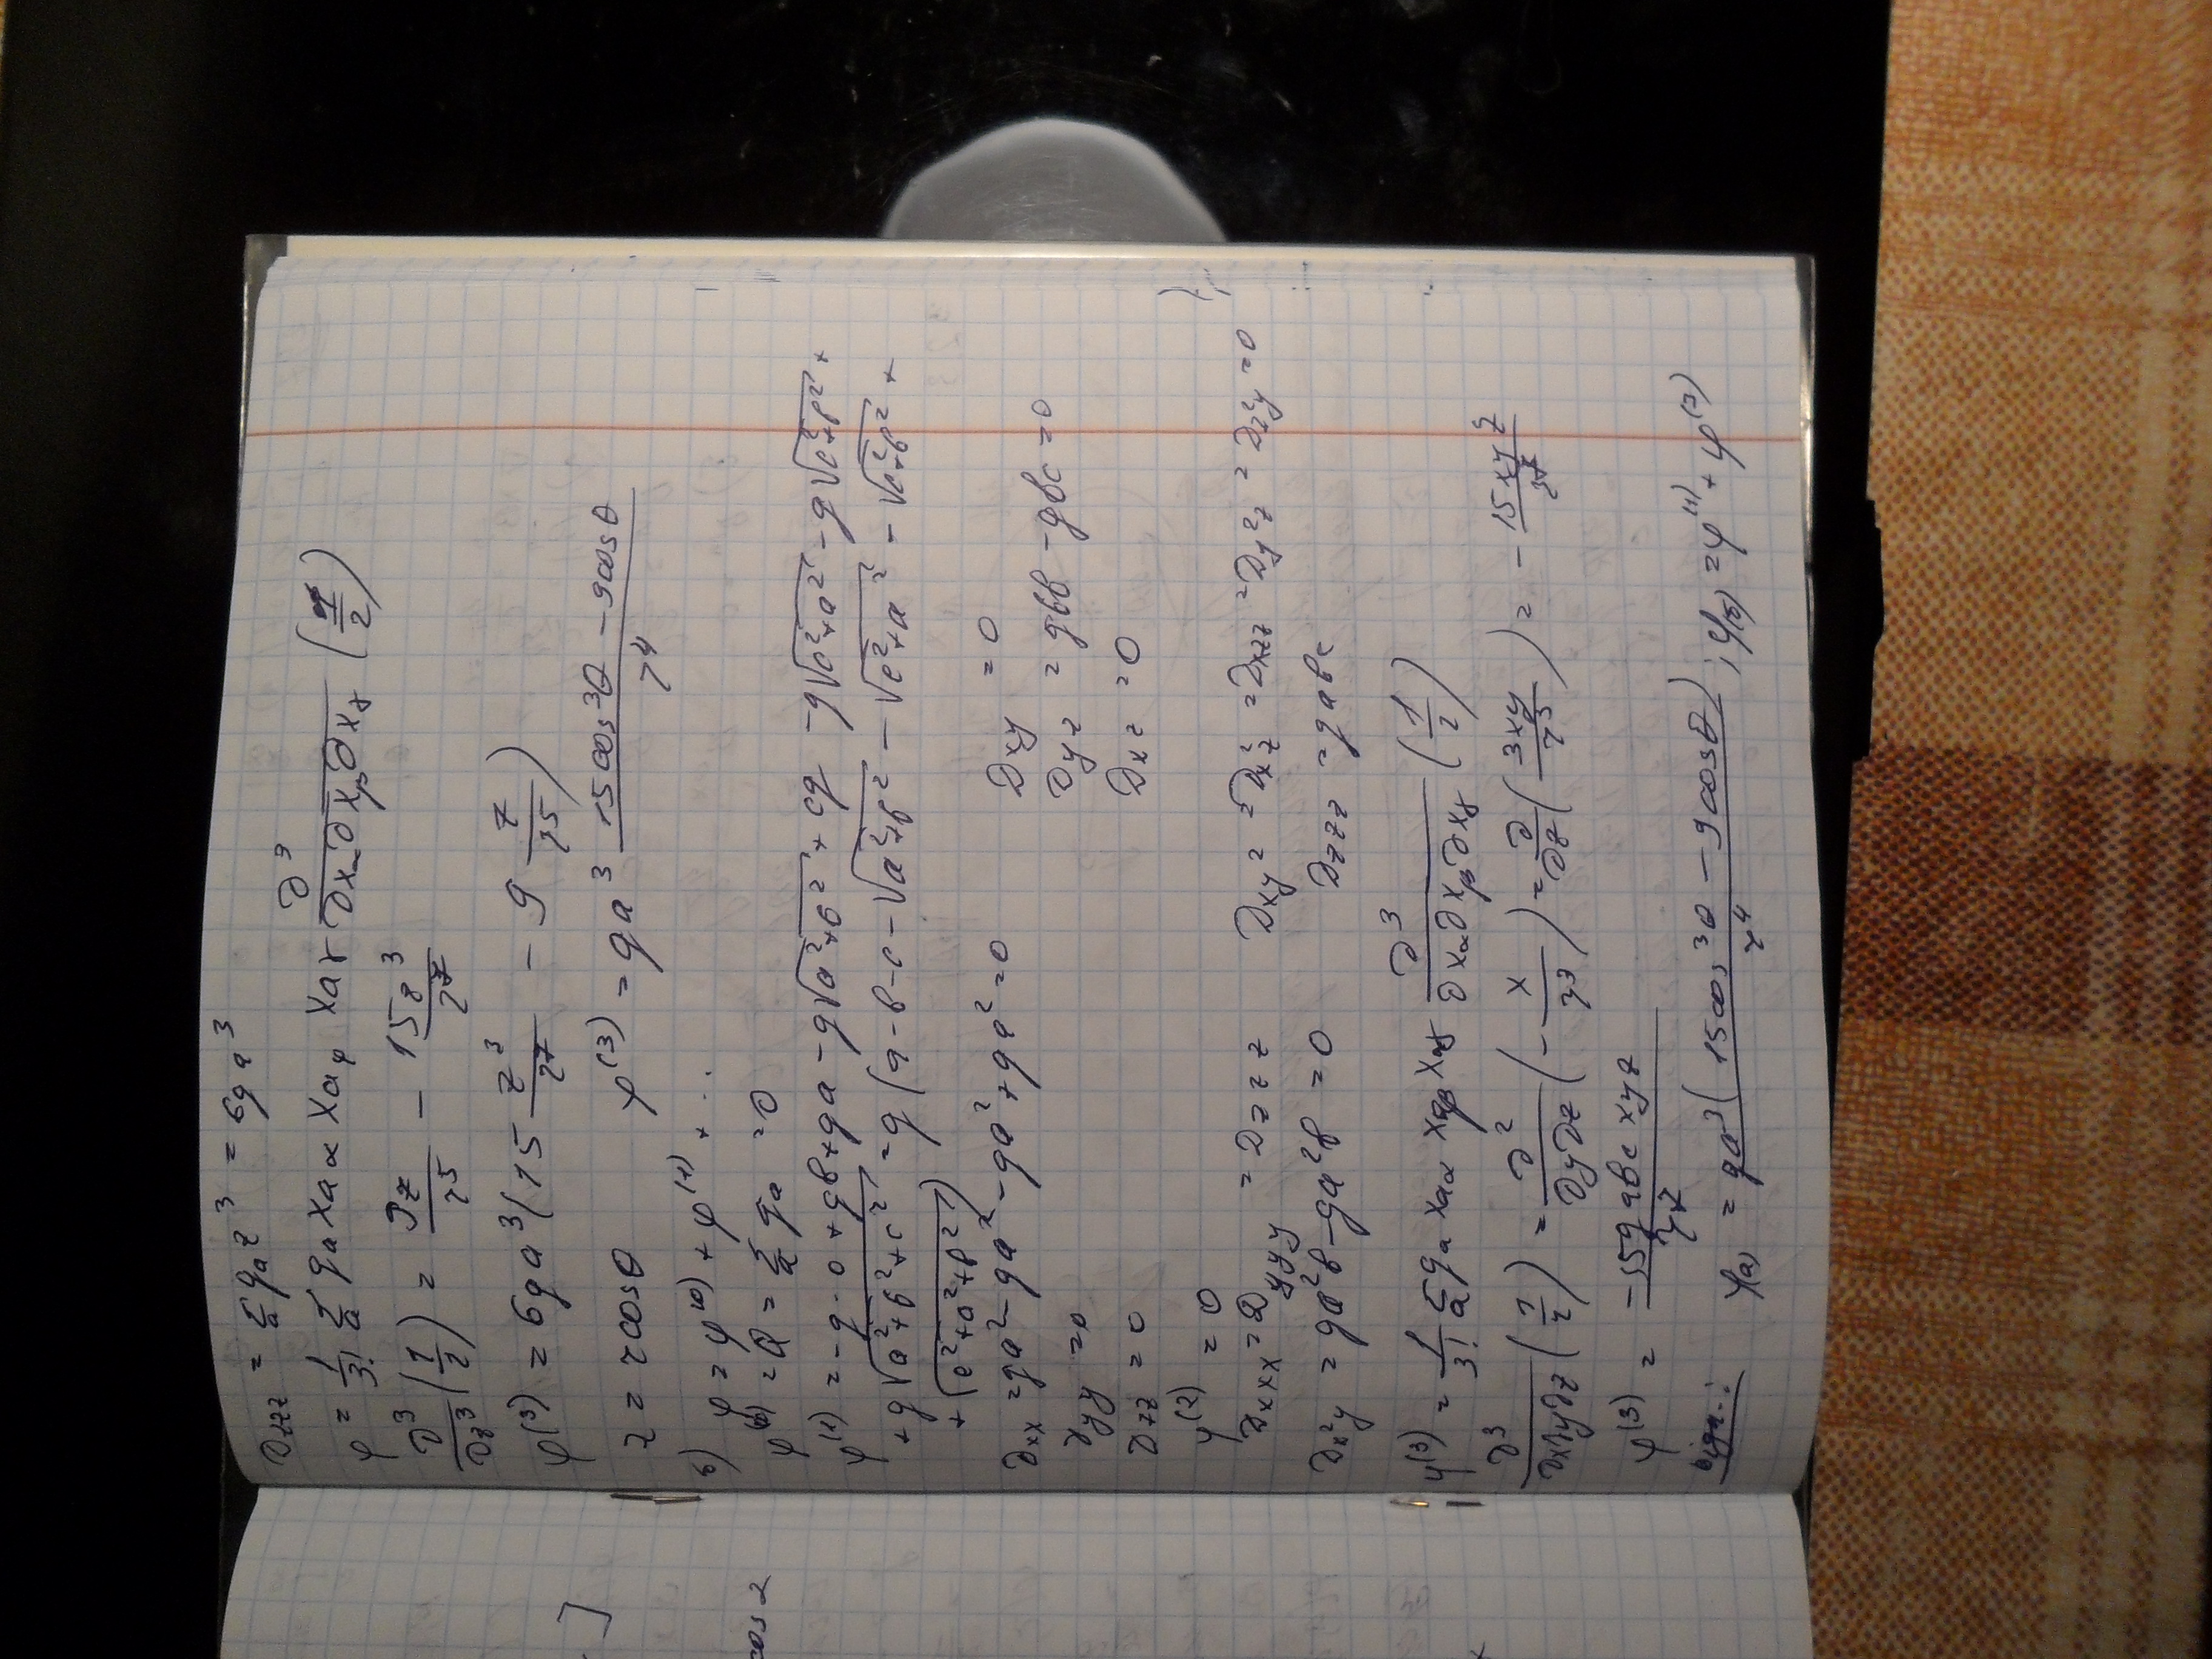 D_zzz = Σ_a q_a z³ = 6qa³
φ = 1/3! Σ_a q_a x_aα x_aβ x_aγ ∂³/∂x_α∂x_β∂x_γ (1/r)
∂³/∂z³ (1/r) = 9z/r⁵ − 15z³/r⁷
φ⁽³⁾ = 6qa³(15 z³/r⁷ − 9 z/r⁵)
z = r cosθ φ⁽³⁾ = qa³ (15cos³θ − 9cosθ)/r⁴
б) φ = φ⁽⁰⁾ + φ⁽¹⁾ + ..
φ⁽⁰⁾ = Q = Σ_a q_a = 0
φ⁽¹⁾ = −q·0 + qb + qa − q√(a²+b²) + cq − q√(c²+a²) − q√(c²+b²) +
+ q√(a²+b²+c²) = q(a−b−c−√(a²+b²) − √(c²+a²) − √(c²+b²) +
+ √(c²+a²+b²))
D_xx = qa² − qa² − qa² + qa² = 0 D_xy = 0
D_yy = 0 D_yz = qbb − qbc = 0
D_zz = 0 D_xz = 0
φ⁽²⁾ = 0
D_xxx = D_yyy = D_zzz D_xy² = D_x²z = D_xzz = D_y²z = D_z²y = 0
D_x²y = qa²b − qa²b = 0 D_zzz = qabc
φ⁽³⁾ = 1/3! Σ_a q_a x_aα x_aβ x_aγ ∂³/∂x_α∂x_β∂x_γ (1/r)
∂³/∂x∂y∂z (1/r) = ∂²/∂y∂z (− x/r³) = ∂/∂z (3xy/r⁵) = − 15xyz/r⁷
φ⁽³⁾ = −15qabc xyz/r⁷
Відп.: φ_(а) = qa³(15cos³θ − 9cosθ)/r⁴; φ_(б) = φ⁽¹⁾ + φ⁽³⁾
]
cos2